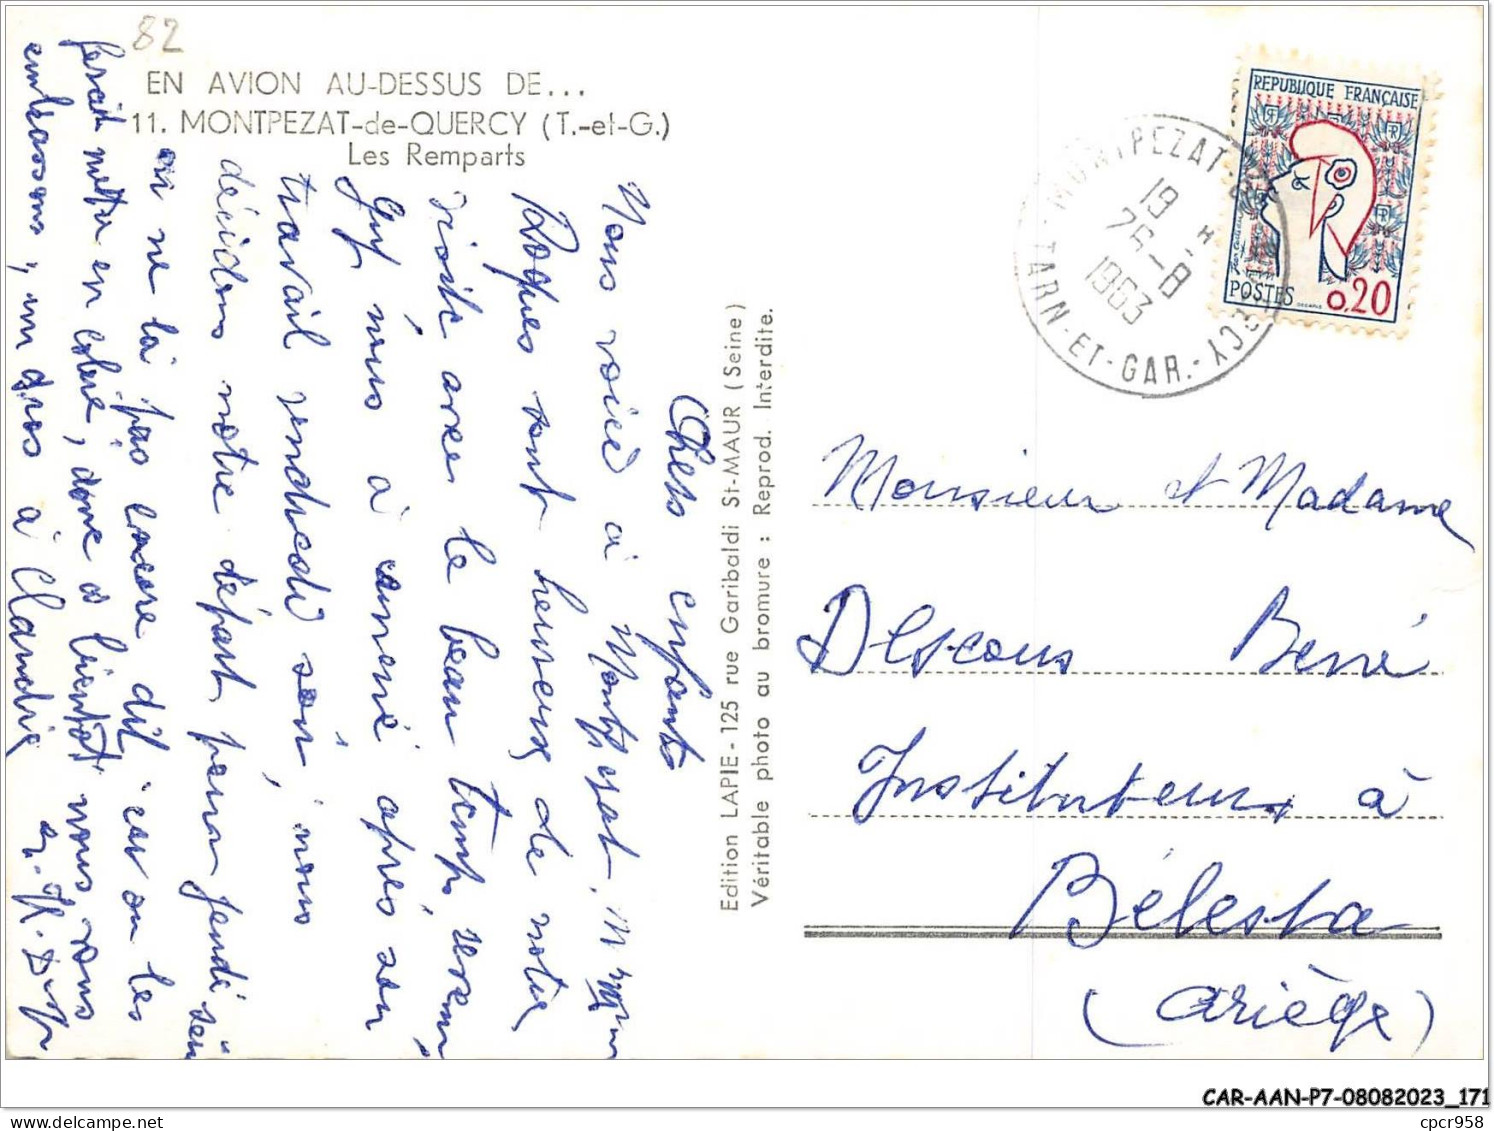 82
EN AVION AU-DESSUS DE...
11. MONTPEZAT-de-QUERCY (T.-et-G.)
Les Remparts
Chers enfants
Nous voici à Montpezat. M Mme
Roques sont heureux de notre
visite avec le beau temps revenu
Guy nous à amené après son
travail vendredi soir, nous
décidons notre départ pour jeudi
on ne là pas encore dit car on les
ferait mettre en colère, donc à bientôt nous vous
embrassons, un gros à Claudie
Edition LAPIE - 125 rue Garibaldi St-MAUR (Seine)
Véritable photo au bromure : Reprod. Interdite.
MONTPEZAT-DE-QUERCY
19 H
25-8
1963
TARN-ET-GAR.
REPUBLIQUE FRANÇAISE
RF
POSTES
0,20
Monsieur et Madame
Descous René
Instituteurs à
Bélesta
(Ariège)
CAR-AAN-P7-08082023_171
cpcr958